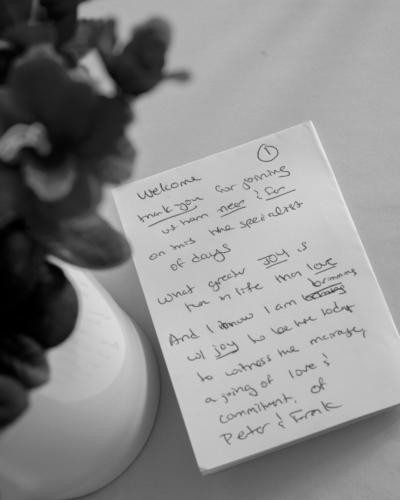 ①
Welcome
thank you for joining
us from near & far
on this the specialist
of days
What greater JOY is
there in life than love
And I know I am brimming
w/ joy to be here today
to witness the marriage,
a joing of love &
commitment, of
Peter & Frank